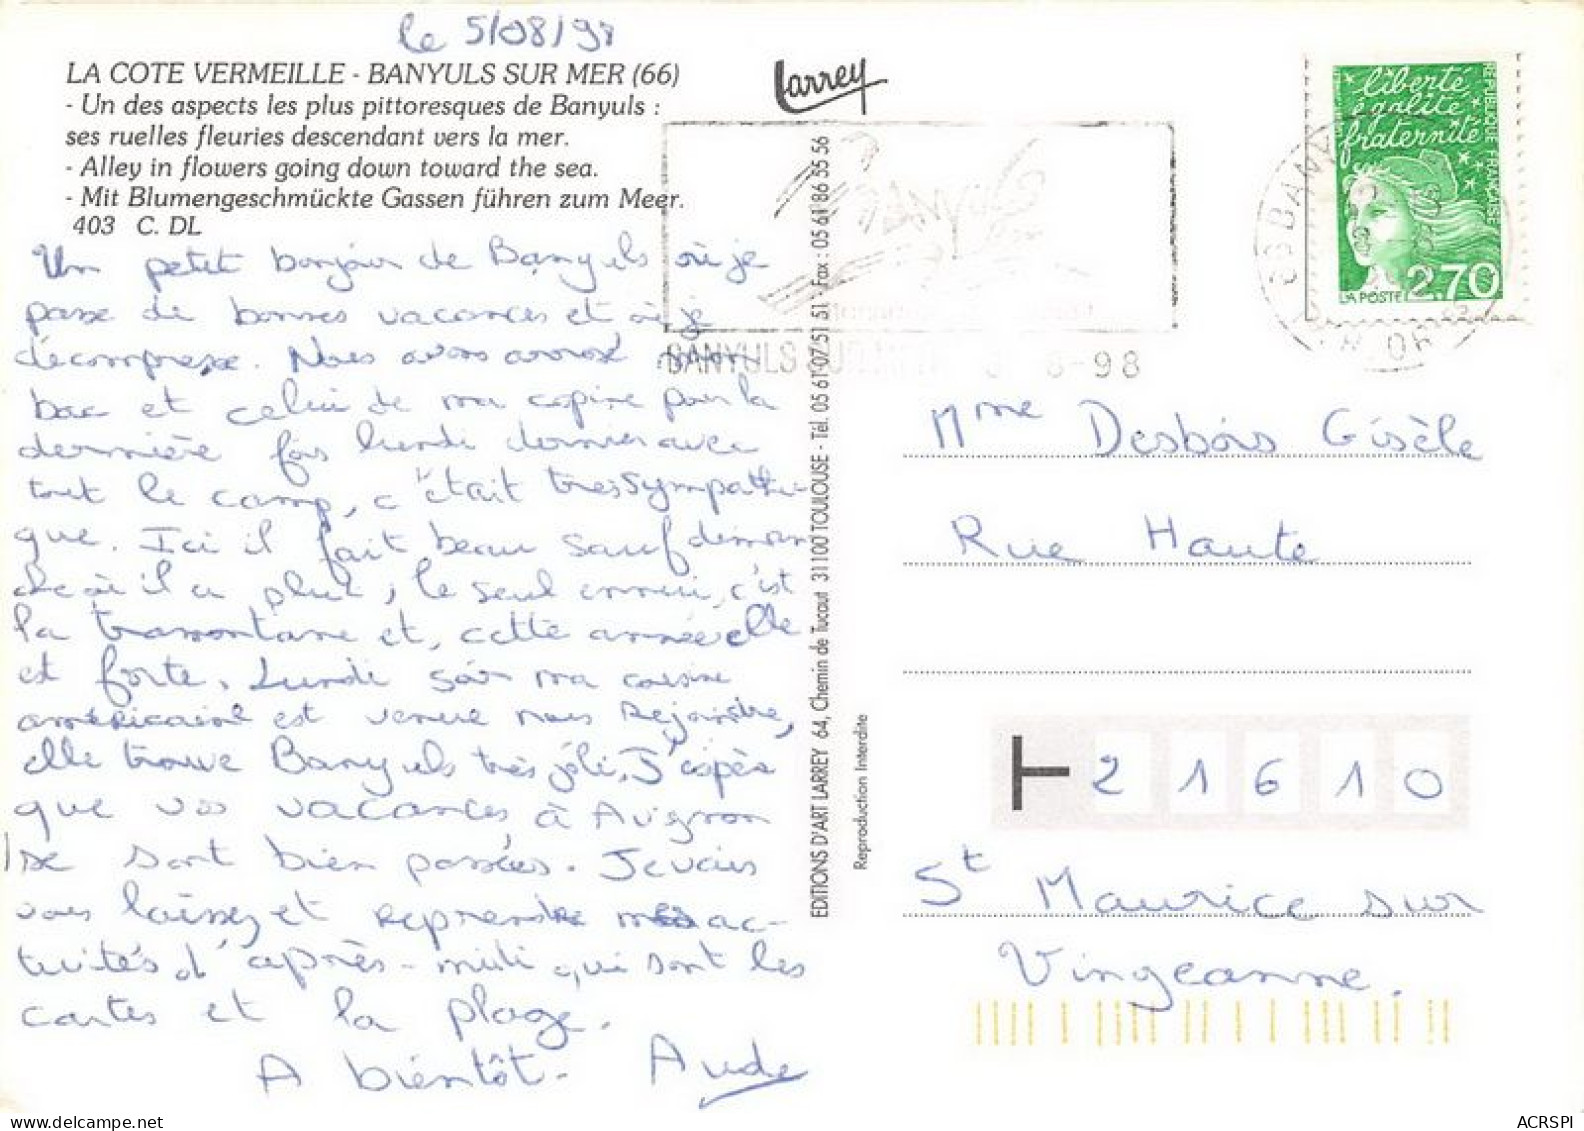 le 5/08/98
LA COTE VERMEILLE - BANYULS SUR MER (66)
- Un des aspects les plus pittoresques de Banyuls :
ses ruelles fleuries descendant vers la mer.
- Alley in flowers going down toward the sea.
- Mit Blumengeschmückte Gassen führen zum Meer.
403 C. DL
Un petit bonjour de Banyuls où je
passe de bonnes vacances et où je
décompresse. Nous avons arrosé mon
bac et celui de ma copine pour la
dernière fois lundi dernier avec
tout le camp, c'était très sympathi-
que. Ici il fait beau sauf diman
che où il a plut, le seul ennui, c'est
la tramontane et, cette année elle
est forte. Lundi soir ma cousine
américaine est venue nous rejoindre,
elle trouve Banyuls très joli. J'espère
que vos vacances à Avignon
se sont bien passées. Je vais
vous laissez et reprendre mes ac-
tivités d'après-midi qui sont les
cartes et la plage.
A bientôt. Aude
Larrey
EDITIONS D'ART LARREY 64, Chemin de Tucaut 31100 TOULOUSE - Tél. 05 61 07 51 51 - Fax : 05 61 86 55 56
Reproduction Interdite
BANYULS SUR MER
8-98
liberté
égalité
fraternité
REPUBLIQUE FRANÇAISE
LA POSTE 2,70
Mme Desbois Gisèle
Rue Haute
21610
St Maurice sur
Vingeanne.
ACRSPI